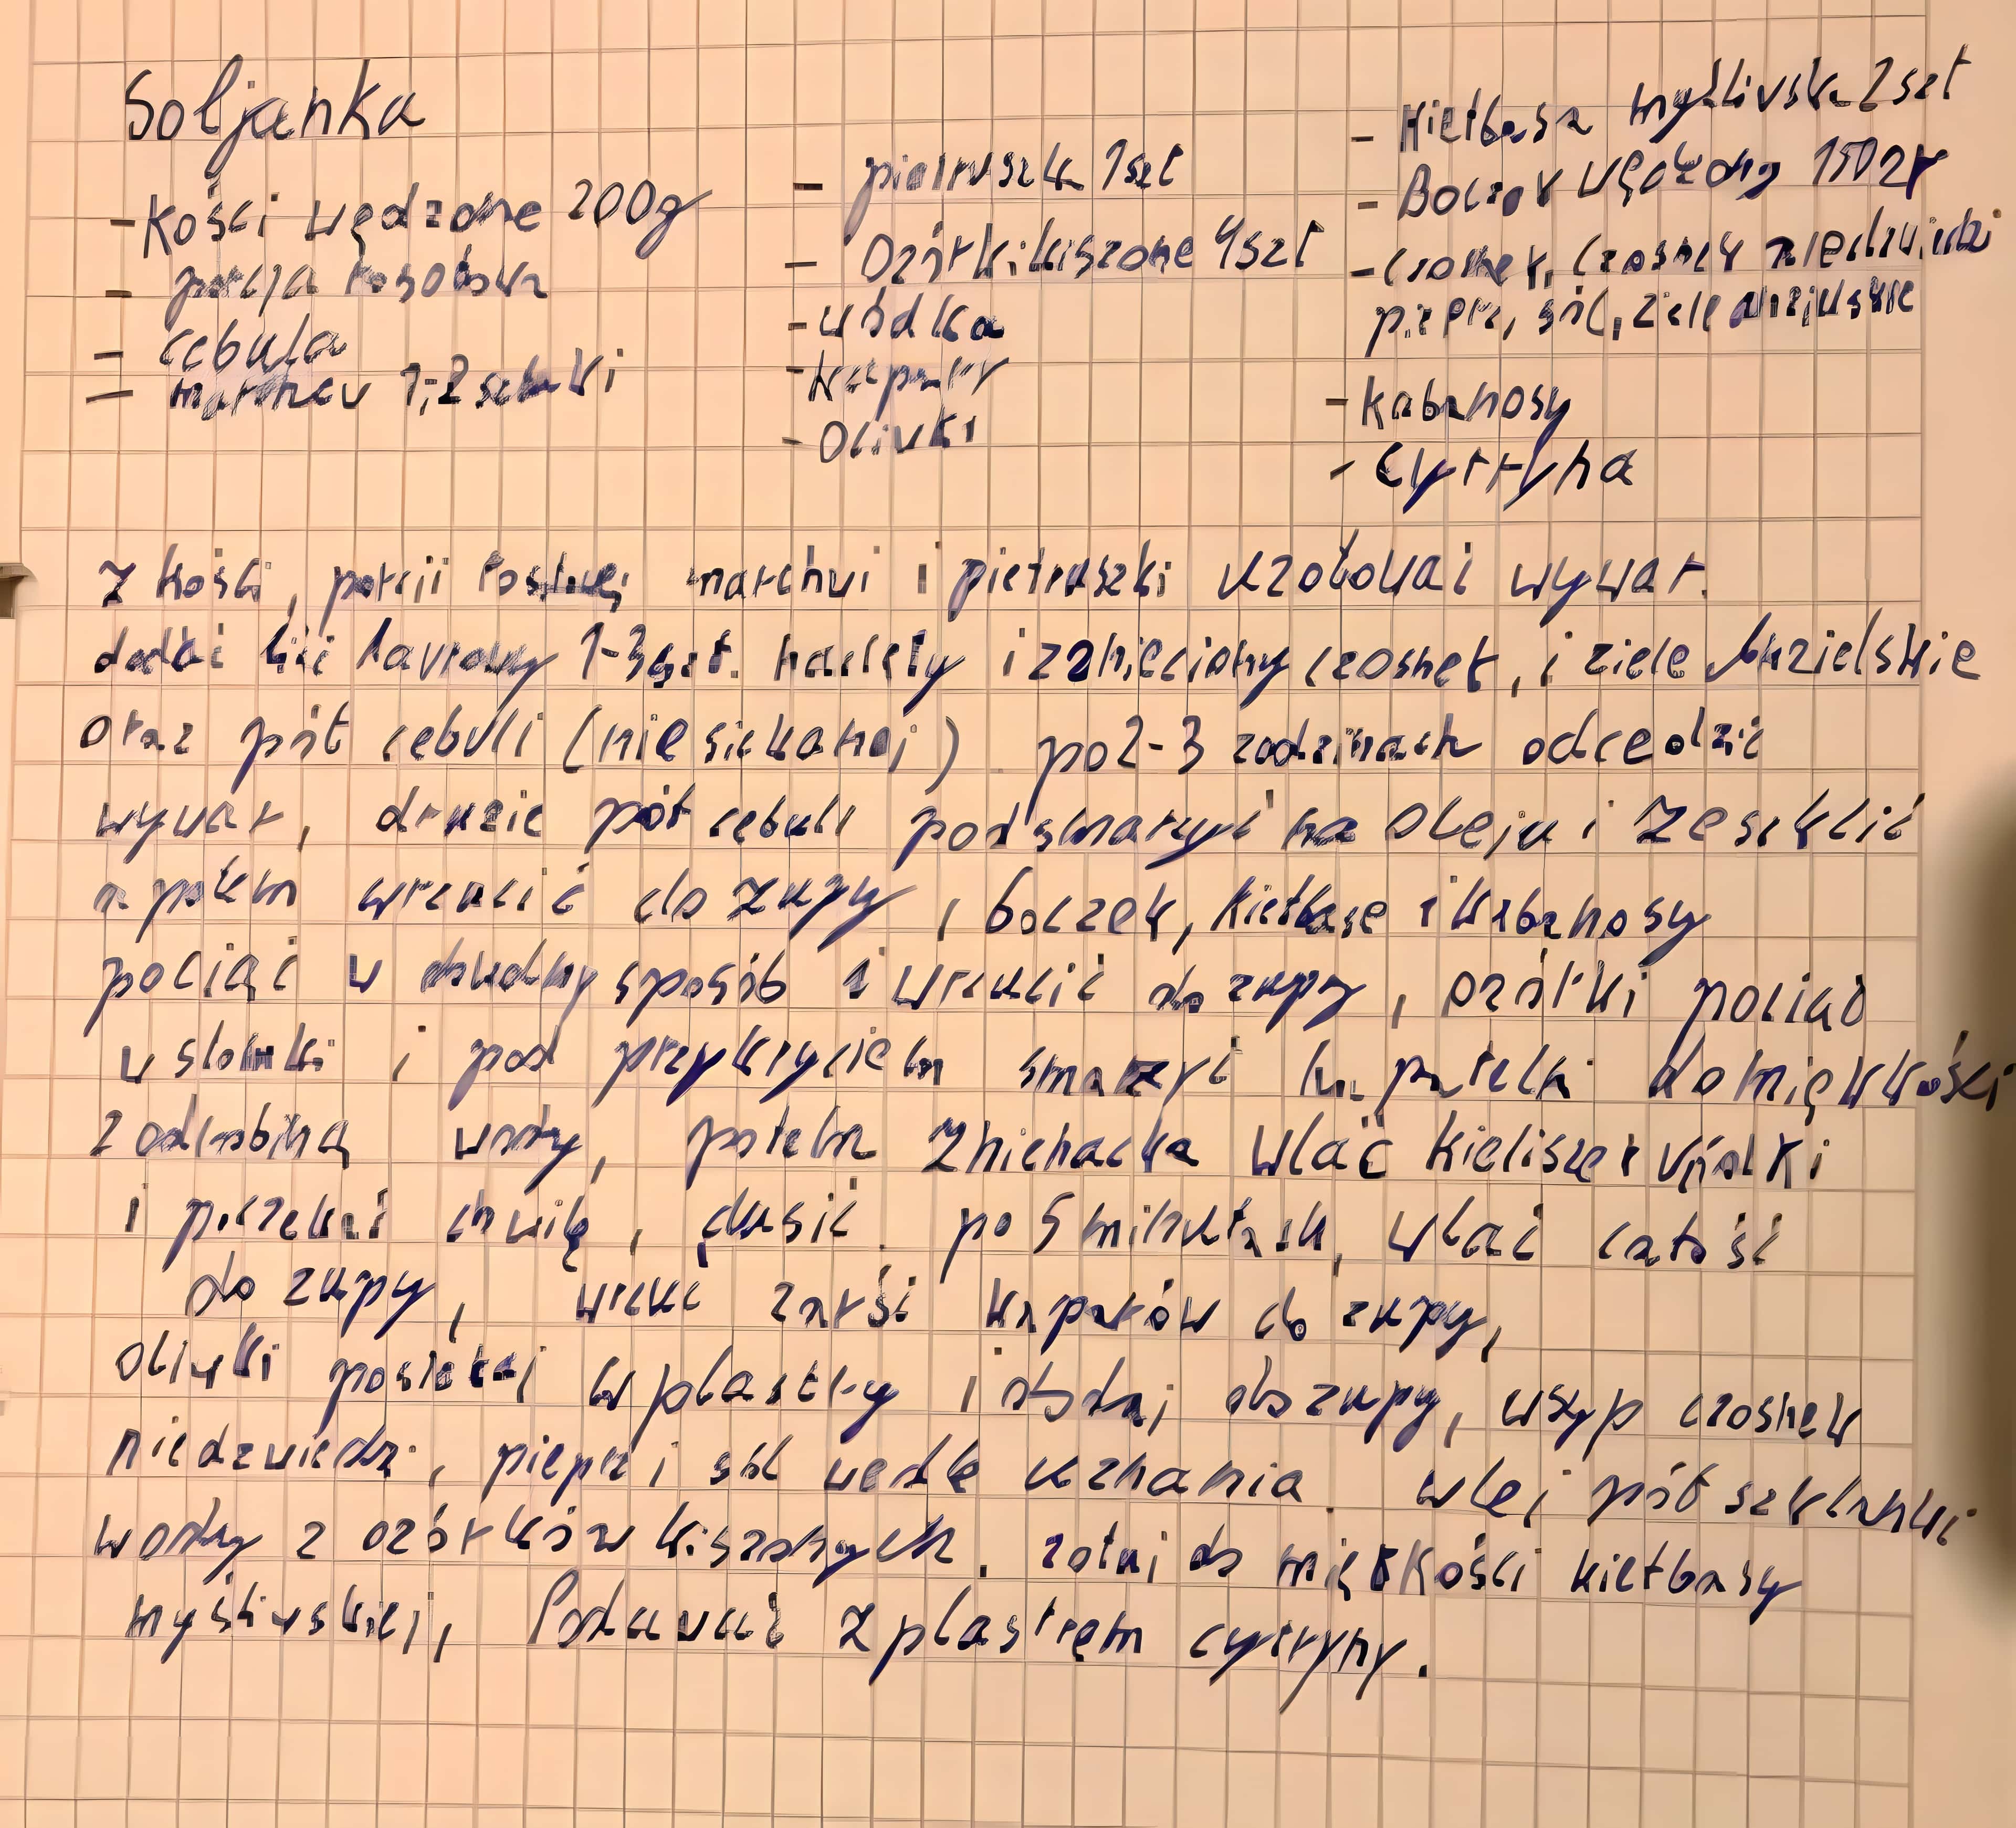 Soljanka
- Kości wędzone 200g
- porcja rosołowa
- cebula
- marchew 1,2 sztuki
- pietruszka 1szt
- Ogórki kiszone 4szt
- wódka
- Kapary
- Oliwki
- Kiełbasa myśliwska 2szt
- Boczek wędzony 150gr
- czosnek, czosnek niedźwiedzi
pieprz, sól, ziele angielskie
- Kabanosy
- Cytryna
Z kości, porcji marchwi i pietruszki ugotować wywar.
dodać liść laurowy 1-3szt. nacięty i zgnieciony czosnek, i ziele Angielskie
oraz pół cebuli (nie siekanej). po 2-3 godzinach odcedzić
wywar, drugie pół cebuli podsmażyć na oleju i zeszklić
a potem wrzucić do zupy, boczek, kiełbase i kabanosy
pociąć w dowolny sposób i wrzucić do zupy, ogórki pociąć
w słomki i pod przykryciem smarzyć na patelki do miękkości
z odrobiną wody, potem znienacka wlać kieliszek wódki
i poczekać chwilę, dusić. po 5 minutach, wlać całość
do zupy, wrzuć garść kaparów do zupy,
oliwki posiekaj w plastry i dodaj do zupy, wsyp czosnek
niedzwiedzi, pieprz i sól wedle uznania. wlej pół szklanki
wody z ogórków kiszonych. gotuj do miękkości kiełbasy
myśliwskiej, Podawać z plastrem cytryny.